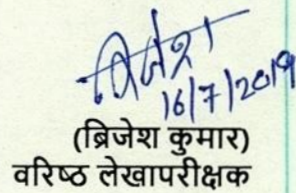 ब्रिजेश
16/7/2019
(ब्रिजेश कुमार)
वरिष्ठ लेखापरीक्षक